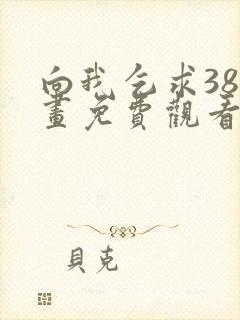 向我乞求38
畫免費觀看
貝克